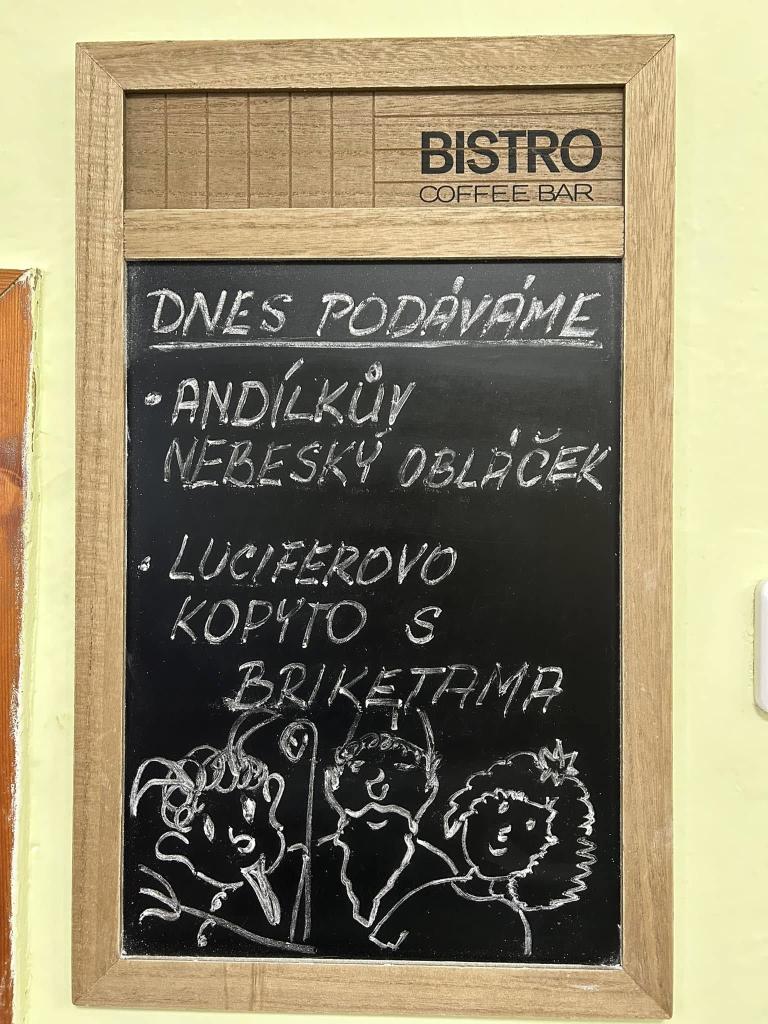 BISTRO
COFFEE BAR
DNES PODÁVÁME
• ANDÍLKŮV
NEBESKÝ OBLÁČEK
• LUCIFEROVO
KOPYTO S
BRIKETAMA